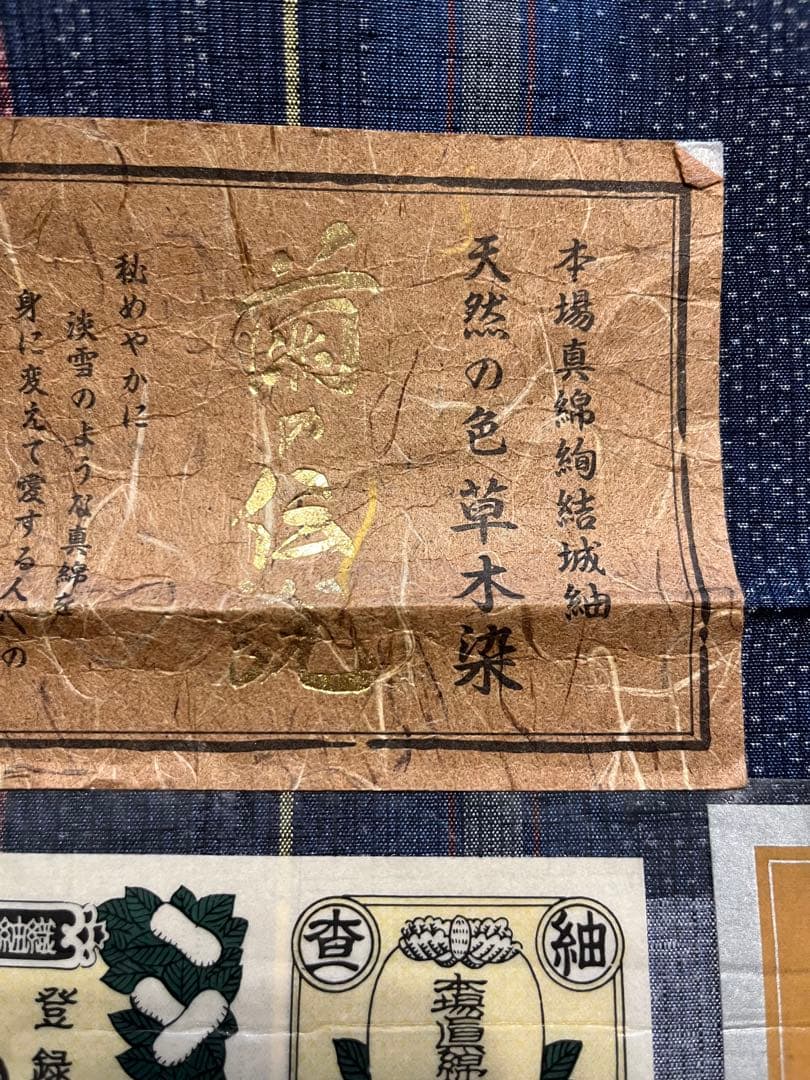 本場真綿絢結城紬
天然の色草木染
繭の伝説
秘めやかに
淡雪のような真綿を
身に変えて愛する人への
査
紬
本場真綿
紬織
登録